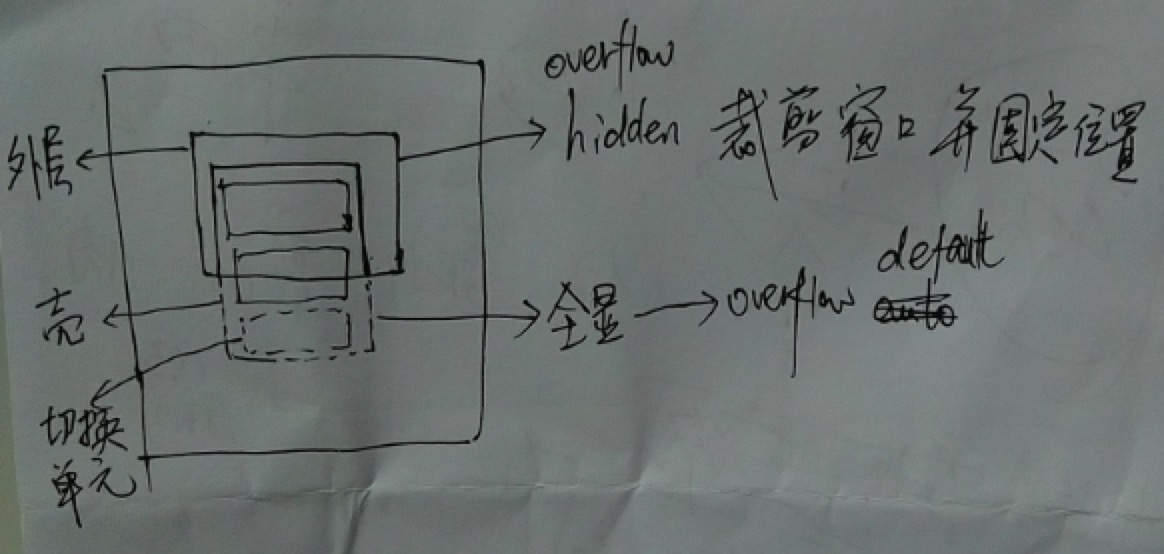 overflow
hidden 裁剪窗口并固定位置
外层
default
壳
全显 → overflow auto
切换
单元